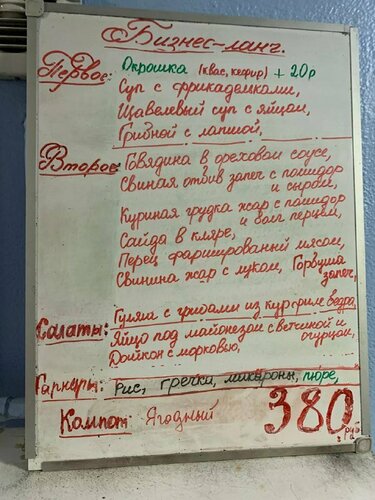 Бизнес-ланг.
Первое: Окрошка (квас, кефир) + 20р
Суп с фрикадельками,
Щавелевый суп с яйцом,
Грибной с лапшой,
Второе: Говядина в ореховом соусе,
Свиная отбив запеч с помидор
и сыром,
Куриная грудка жар с помидор
и болг перцем,
Сайда в кляре,
Перец фаршированный мясом,
Свинина жар с луком, Горбуша
запеч,
Гуляш с грибами из кур филе бедра
Салаты: Яйцо под майонезом с ветчиной и
огурцом,
Дайкон с морковью,
Гарниры: Рис, гречка, макароны, пюре,
Компот: Ягодный 380 руб